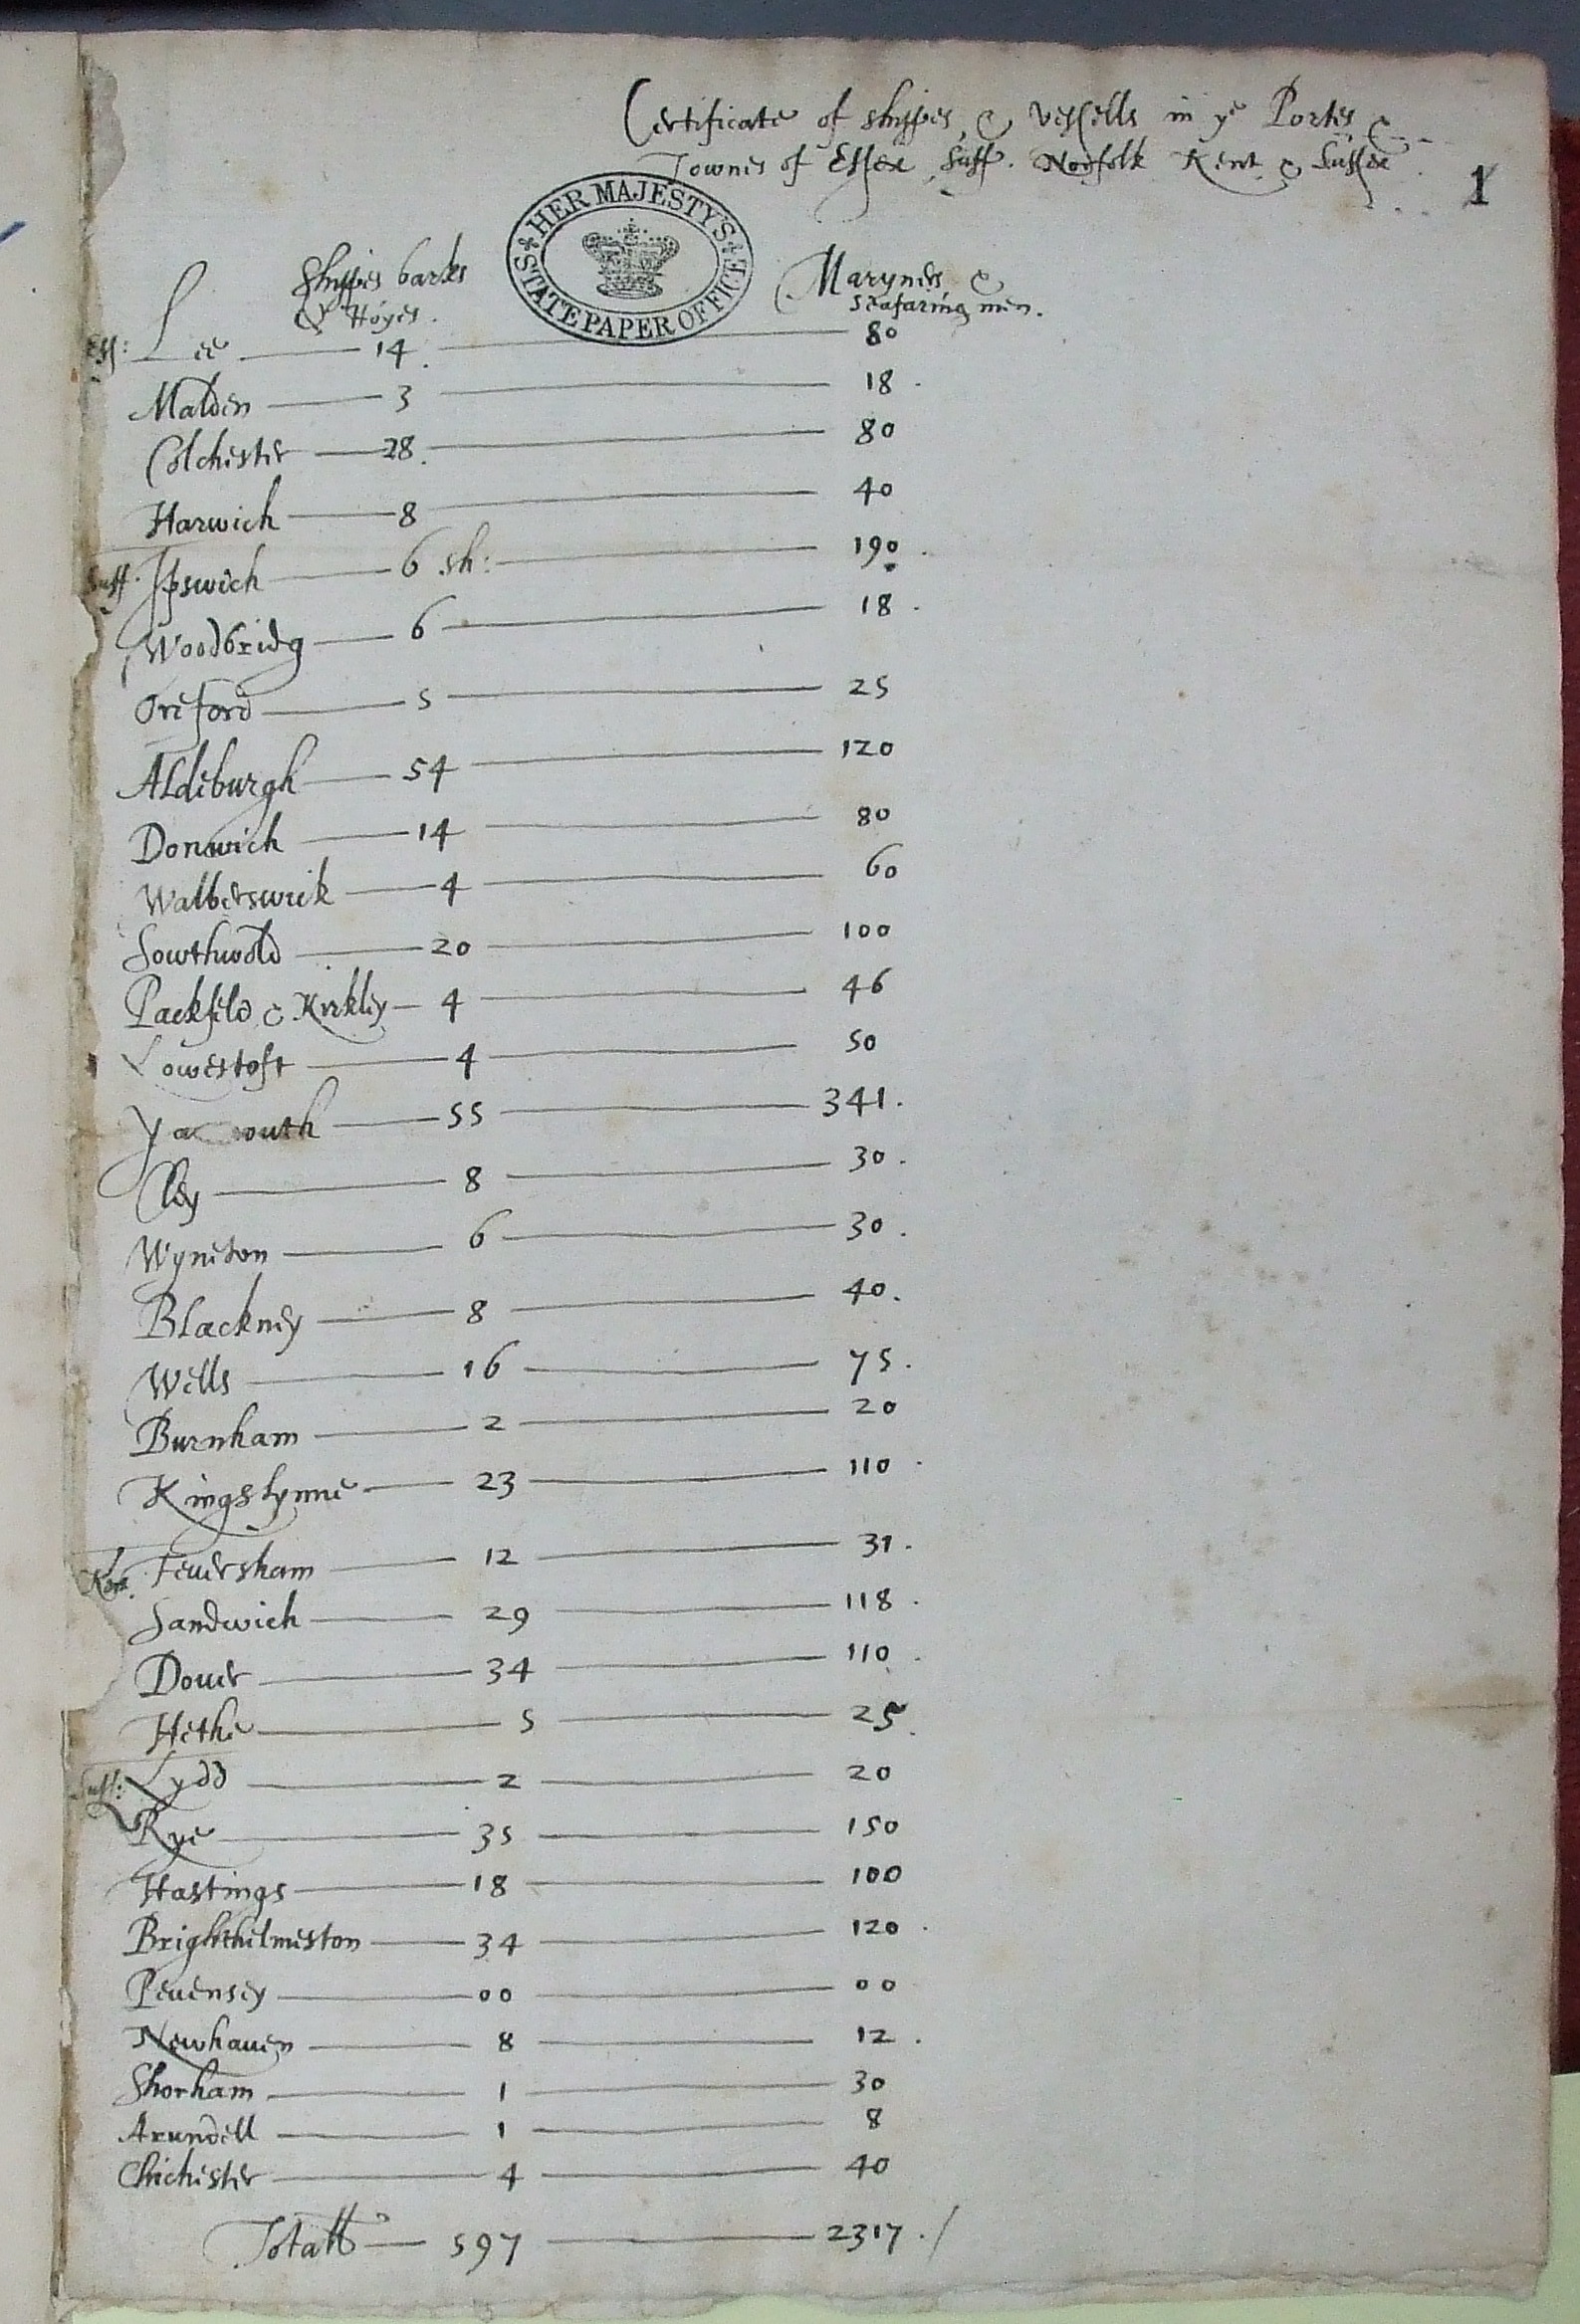 Certificate of shippes & vessells in ye Portes &
Townes of Essex, Suff. Norfolk Kent & Sussex
1
HER MAJESTY'S
STATE PAPER OFFICE
Shippes barkes
& Hoyes.
Maryners &
seafaring men.
Ess: Lee 14. 80
Maldon 3 18.
Colchester 28. 80
Harwich 8 40
Suff. Ipswich 6 sh: 190.
Woodbridg 6 18.
Oreford 5 25
Aldeburgh 54 120
Donwich 14 80
Walberswick 4 60
Sowthwold 20 100
Packfeld & Kirkley 4 46
Lowestoft 4 50
Ya outh 55 341.
Cley 8 30.
Wyneton 6 30.
Blackney 8 40.
Wells 16 75.
Burnham 2 20
Kings Lynne 23 110.
Kent. Feuersham 12 31.
Sandwich 29 118.
Douer 34 110.
Hethe 5 25.
Suss: Lydd 2 20
Rye 35 150
Hastings 18 100
Brighthelmeston 34 120.
Peuensey 00 00
Newhauen 8 12.
Shorham 1 30
Arundell 1 8
Chichester 4 40
Totall 597 2317./